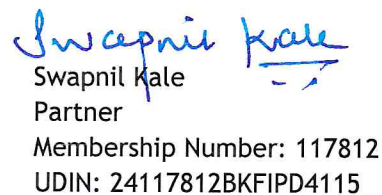 Swapnil Kale
Swapnil Kale
Partner
Membership Number: 117812
UDIN: 24117812BKFIPD4115